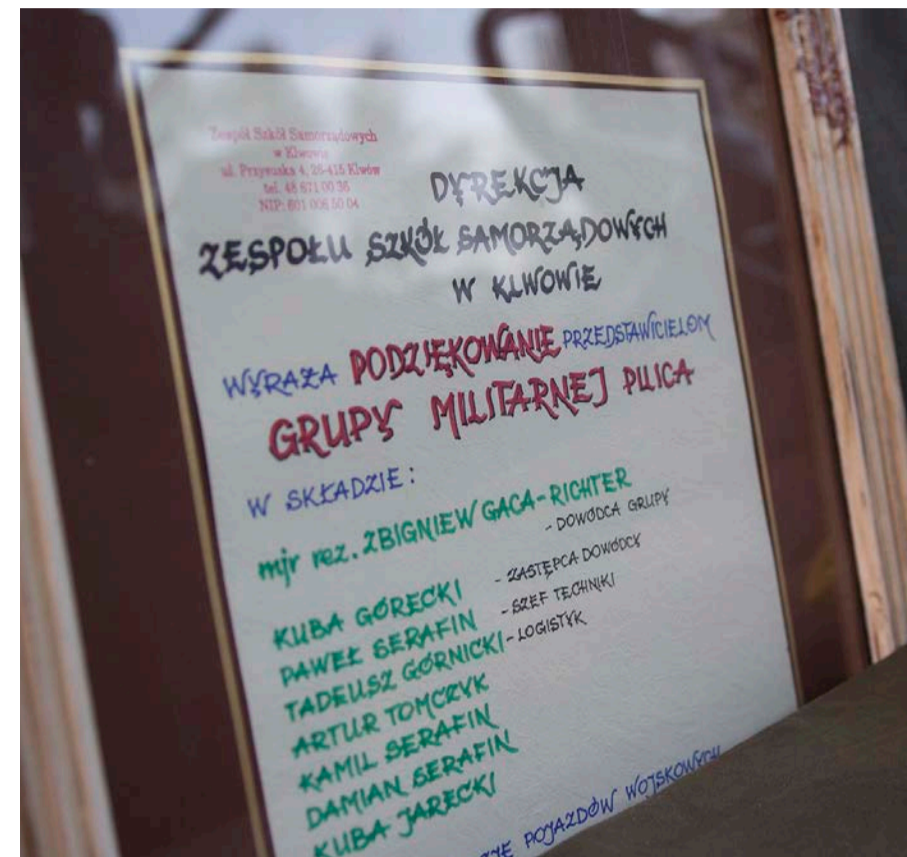 Zespół Szkół Samorządowych
w Klwowie
ul. Przysuska 4, 26-415 Klwów
tel. 48 671 00 36
NIP: 601 006 50 04
DYREKCJA
ZESPOŁU SZKÓŁ SAMORZĄDOWYCH
W KLWOWIE
WYRAŻA PODZIĘKOWANIE PRZEDSTAWICIELOM
GRUPY MILITARNEJ PILICA
W SKŁADZIE:
mjr rez. ZBIGNIEW GACA-RICHTER
- DOWÓDCA GRUPY
KUBA GÓRECKI - ZASTĘPCA DOWÓDCY
PAWEŁ SERAFIN - SZEF TECHNIKI
TADEUSZ GÓRNICKI - LOGISTYK
ARTUR TOMCZYK
KAMIL SERAFIN
DAMIAN SERAFIN
KUBA JARECKI
POJAZDÓW WOJSKOWYCH